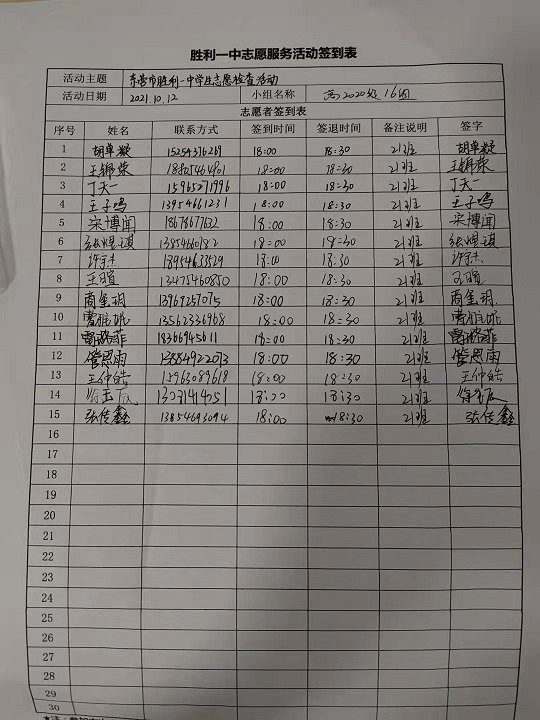 胜利一中志愿服务活动签到表
活动主题 东营市胜利一中学生志愿检查活动
活动日期 2021.10.12 小组名称 高2020级16组
志愿者签到表
序号 姓名 联系方式 签到时间 签退时间 备注说明 签字
1 15254376269 18:00 18:30 21班
2 王锦荣 18:00 18:30 21班 王锦荣
3 丁天一 15965271996 18:00 18:30 21班 丁天一
4 王子鸣 13954661231 18:00 18:30 21班 王子鸣
5 宋博闻 18678677632 18:00 18:30 21班 宋博闻
6 13854660782 18:00 18:30 21班
7 18954633529 18:00 18:30 21班
8 王暄 13475460850 18:00 18:30 21班 王暄
9 商奎玥 13967257075 18:00 18:30 21班 商奎玥
10 13562336968 18:00 18:30 21班
11 18366945011 18:00 18:30 21班
12 管思雨 13884922073 18:00 18:30 21班 管思雨
13 王仲皓 15963089618 18:00 18:30 21班 王仲皓
14 18:00 18:30 21班
15 张佳鑫 13854693094 18:00 18:30 21班 张佳鑫
16
17
18
19
20
21
22
23
24
25
26
27
28
29
30